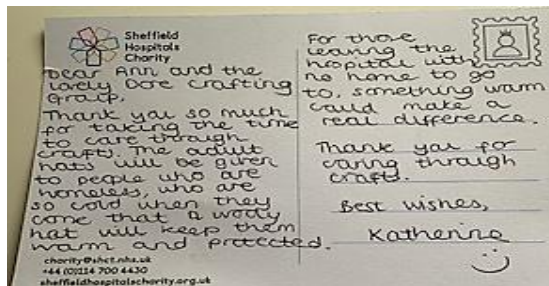 Sheffield
Hospitals
Charity
Dear Ann and the
lovely Dore crafting
Group,
Thank you so much
for taking the time
to care through
crafts. The adult
hats will be given
to people who are
homeless, who are
so cold when they
come that a wooly
hat will keep them
warm and protected.
charity@shct.nhs.uk
+44 (0)114 700 4430
sheffieldhospitalscharity.org.uk
For those
leaving the
hospital with
no home to go
to, something warm
could make a
real difference.
Thank you for
caring through
crafts.
Best wishes,
Katherine